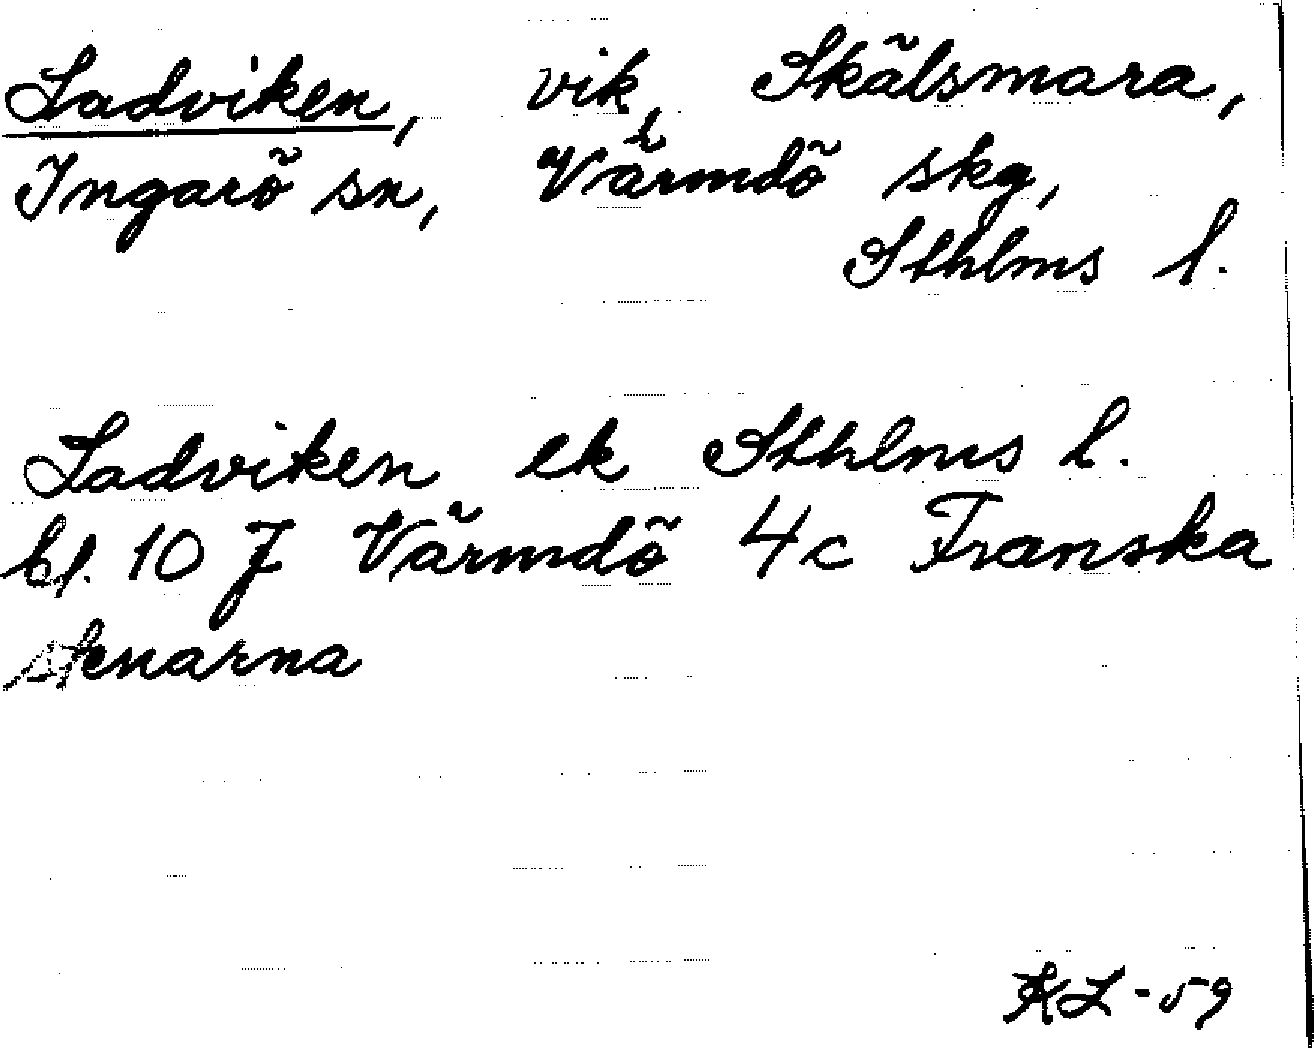 Ladviken, vik, Skälsmara,
Ingarö sn, Värmdö skg,
Sthlms l.
Ladviken ek Sthlms l.
bl. 10 J Värmdö 4c Franska
stenarna
KL-59